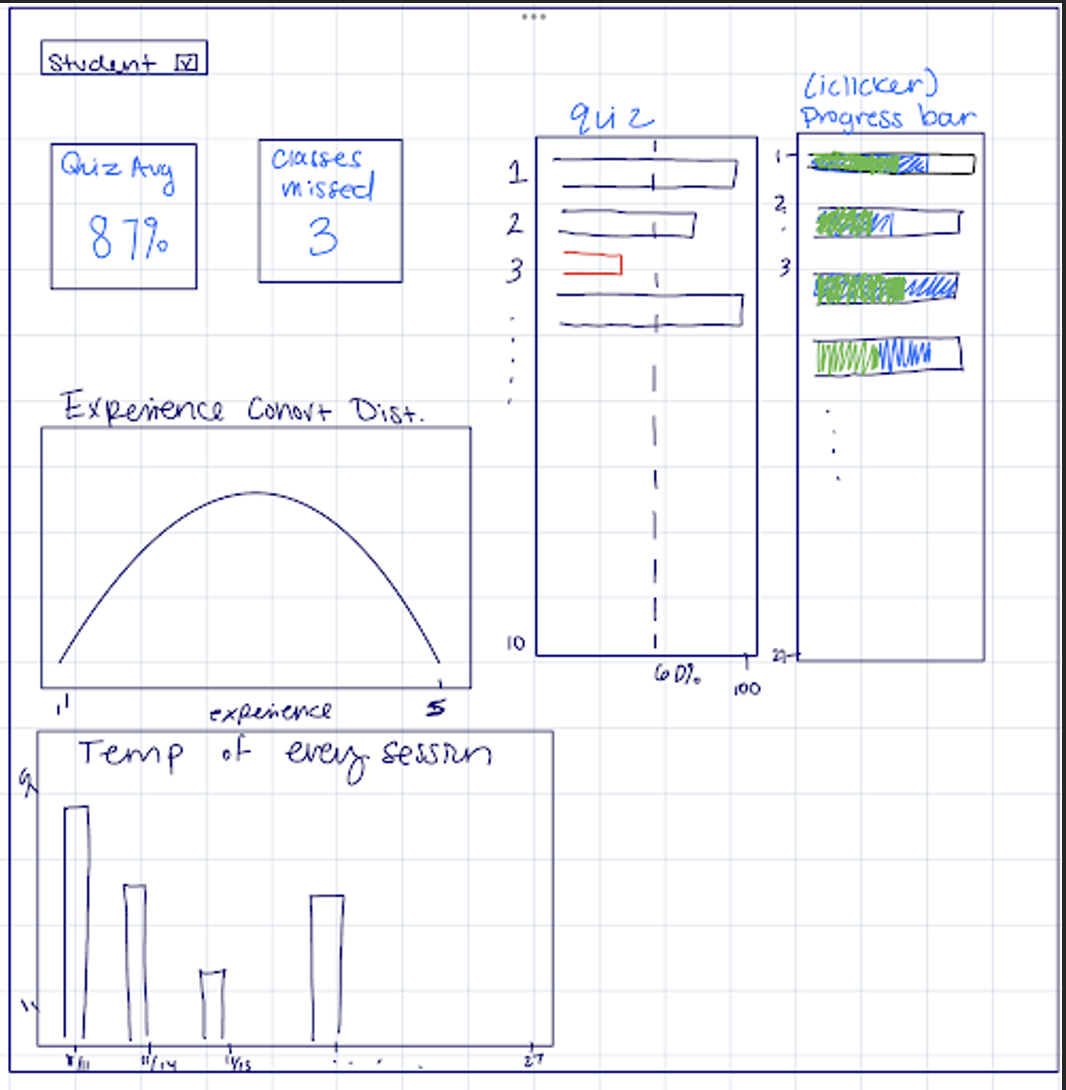 Student
Quiz Avg
87%
classes
missed
3
quiz
1
2
3
10
60%
100
(iclicker)
Progress bar
1
2
3
Experience Cohort Dist.
1
5
experience
Temp of every session
11/14
27